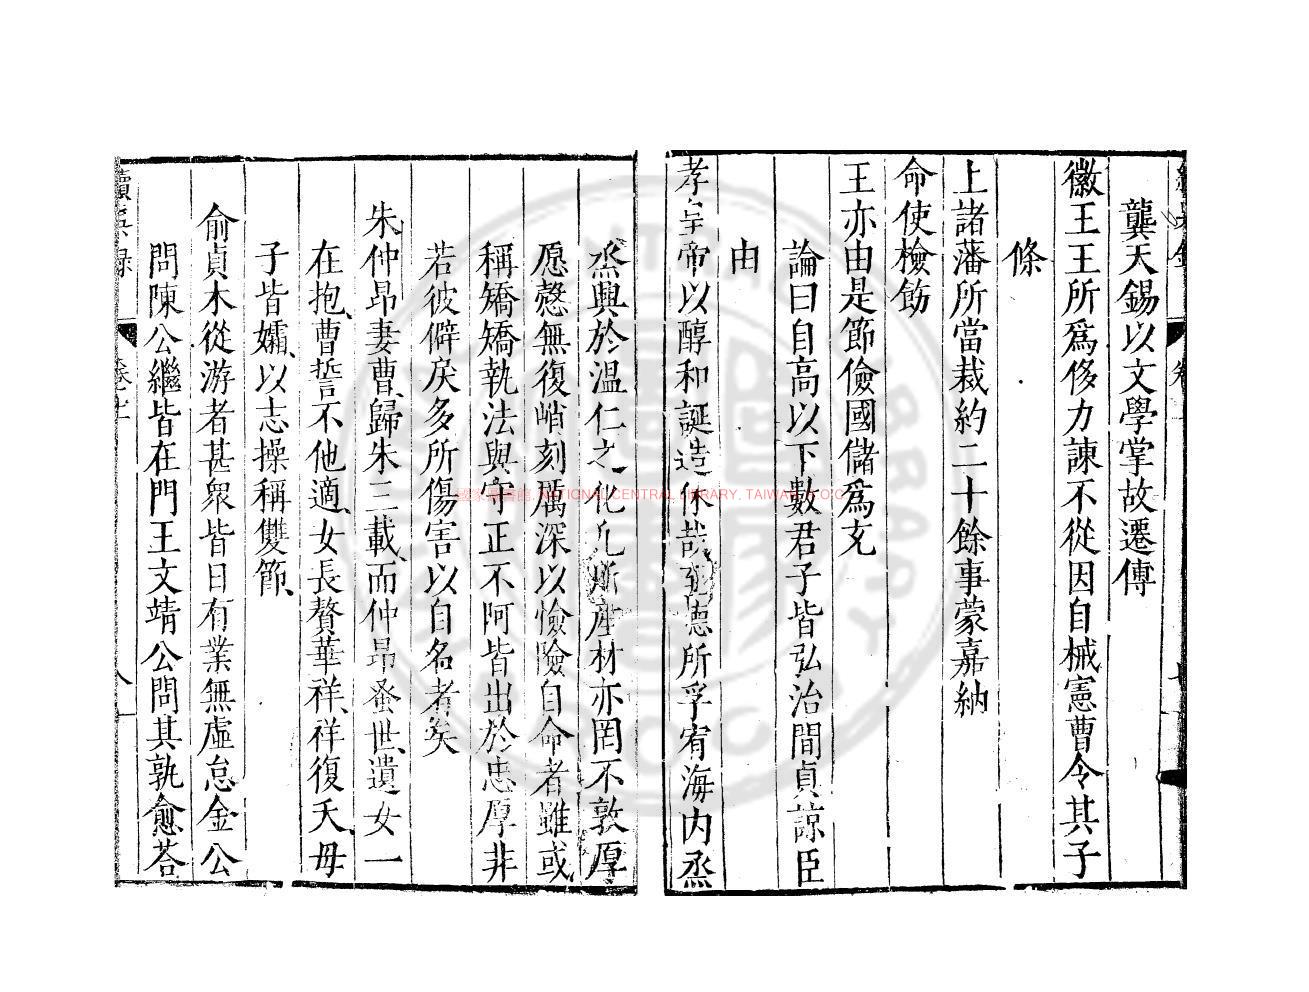 龔天錫以文學掌故遷傅
徽王王所爲侈力諫不從因自械憲曹令其子
條
上諸藩所當裁約二十餘事蒙嘉納
命使檢飭
王亦由是節儉國儲爲充
論曰自高以下數君子皆弘治間貞諒臣
由
孝皇帝以醇和誕造休哉至德所孚宥海内烝
烝興於溫仁之化凡斯産材亦罔不敦厚
愿慤無復峭刻厲深以憸險自命者雖或
稱矯矯執法與守正不阿皆出於忠厚非
若彼僻戾多所傷害以自名者矣
朱仲昻妻曹歸朱三載而仲昻蚤世遺女一
在抱曹誓不他適女長贅華祥祥復夭母
子皆孀以志操稱雙節
俞貞木從游者甚衆皆日有業無虛怠金公
問陳公繼皆在門王文靖公問其孰愈荅
續吳録
卷上
八
國家圖書館, NATIONAL CENTRAL LIBRARY, TAIWAN, R.O.C